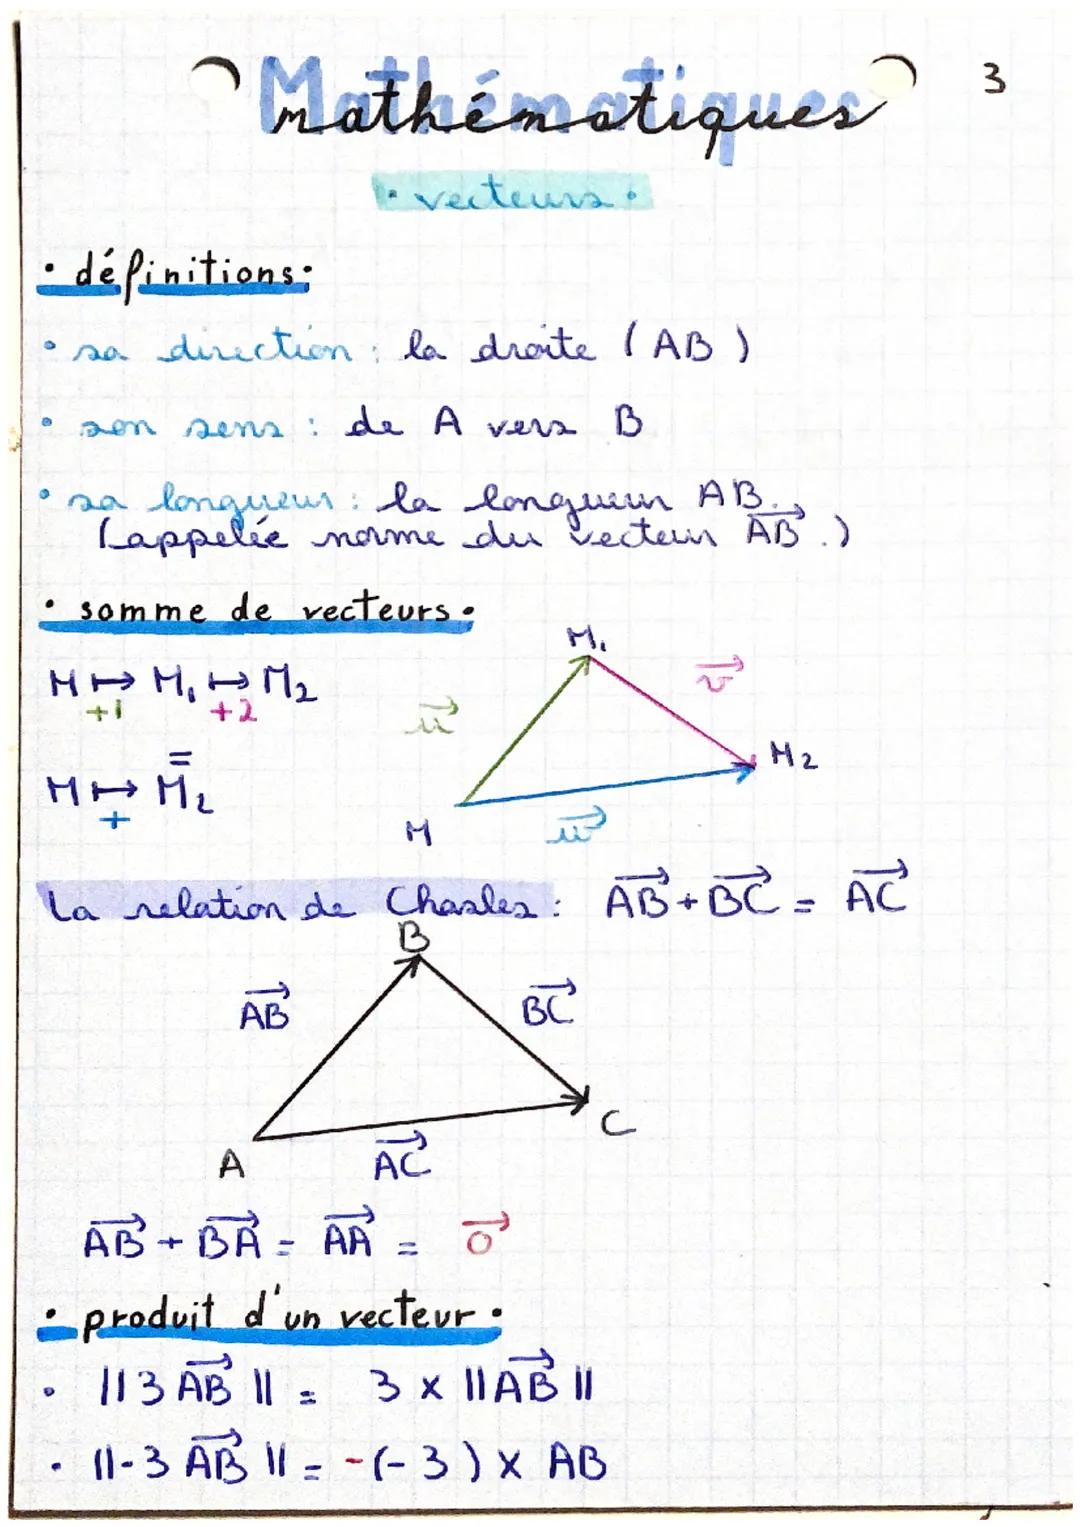 3
Mathématiques
mathématiques
• vecteurs •
• définitions •
• sa direction : la droite (AB)
• son sens : de A vers B
• sa longueur : la longueur AB.
(appelée norme du vecteur A⃗B⃗.)
• somme de vecteurs •
M ↦ M₁ ↦ M₂
+1 +2
=
M ↦ M̄₂
+
M₁
u⃗
v⃗
M₂
M
w⃗
la relation de Chasles : A⃗B⃗ + B⃗C⃗ = A⃗C⃗
B
A⃗B⃗
B⃗C⃗
C
A
A⃗C⃗
A⃗B⃗ + B⃗A⃗ = A⃗A⃗ = 0⃗
• produit d'un vecteur •
• ||3 A⃗B⃗|| = 3 x ||A⃗B⃗||
• ||-3 A⃗B⃗|| = -(-3) x AB